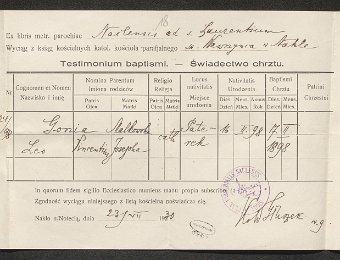 Ex libris metr. parochiae Naklensis ad s. Laurentium
Wyciąg z ksiąg kościelnych katol. kościoła parafjalnego św. Wawrzyńca w Nakle
Testimonium baptismi. — Świadectwo chrztu.
Nr.
Cognomen et Nomen
Nazwisko i imię
Nomina Parentium
Imiona rodziców
Patris
Ojca
Matris
Matki
Religio
Religja
Patris
Ojca
Matris
Matki
Locus nativitatis
Miejsce urodzenia
Nativitatis
Urodzenia
Dies
Dzień
Mens.
Mies.
Annus
Rok
Baptismi
Chrztu
Dies
Dzień
Mens.
Mies.
Patrini
Chrzestni
Gonia
Leo
Josepha
cath
Paterek
16 II 98
17 II
1898
In quorum fidem sigillo Ecclesiastico muniens manu propia subscribo
Zgodność wyciągu niniejszego z listą kościelną poświadcza się.
Nakło n. Notecią, dnia 23 VII 30